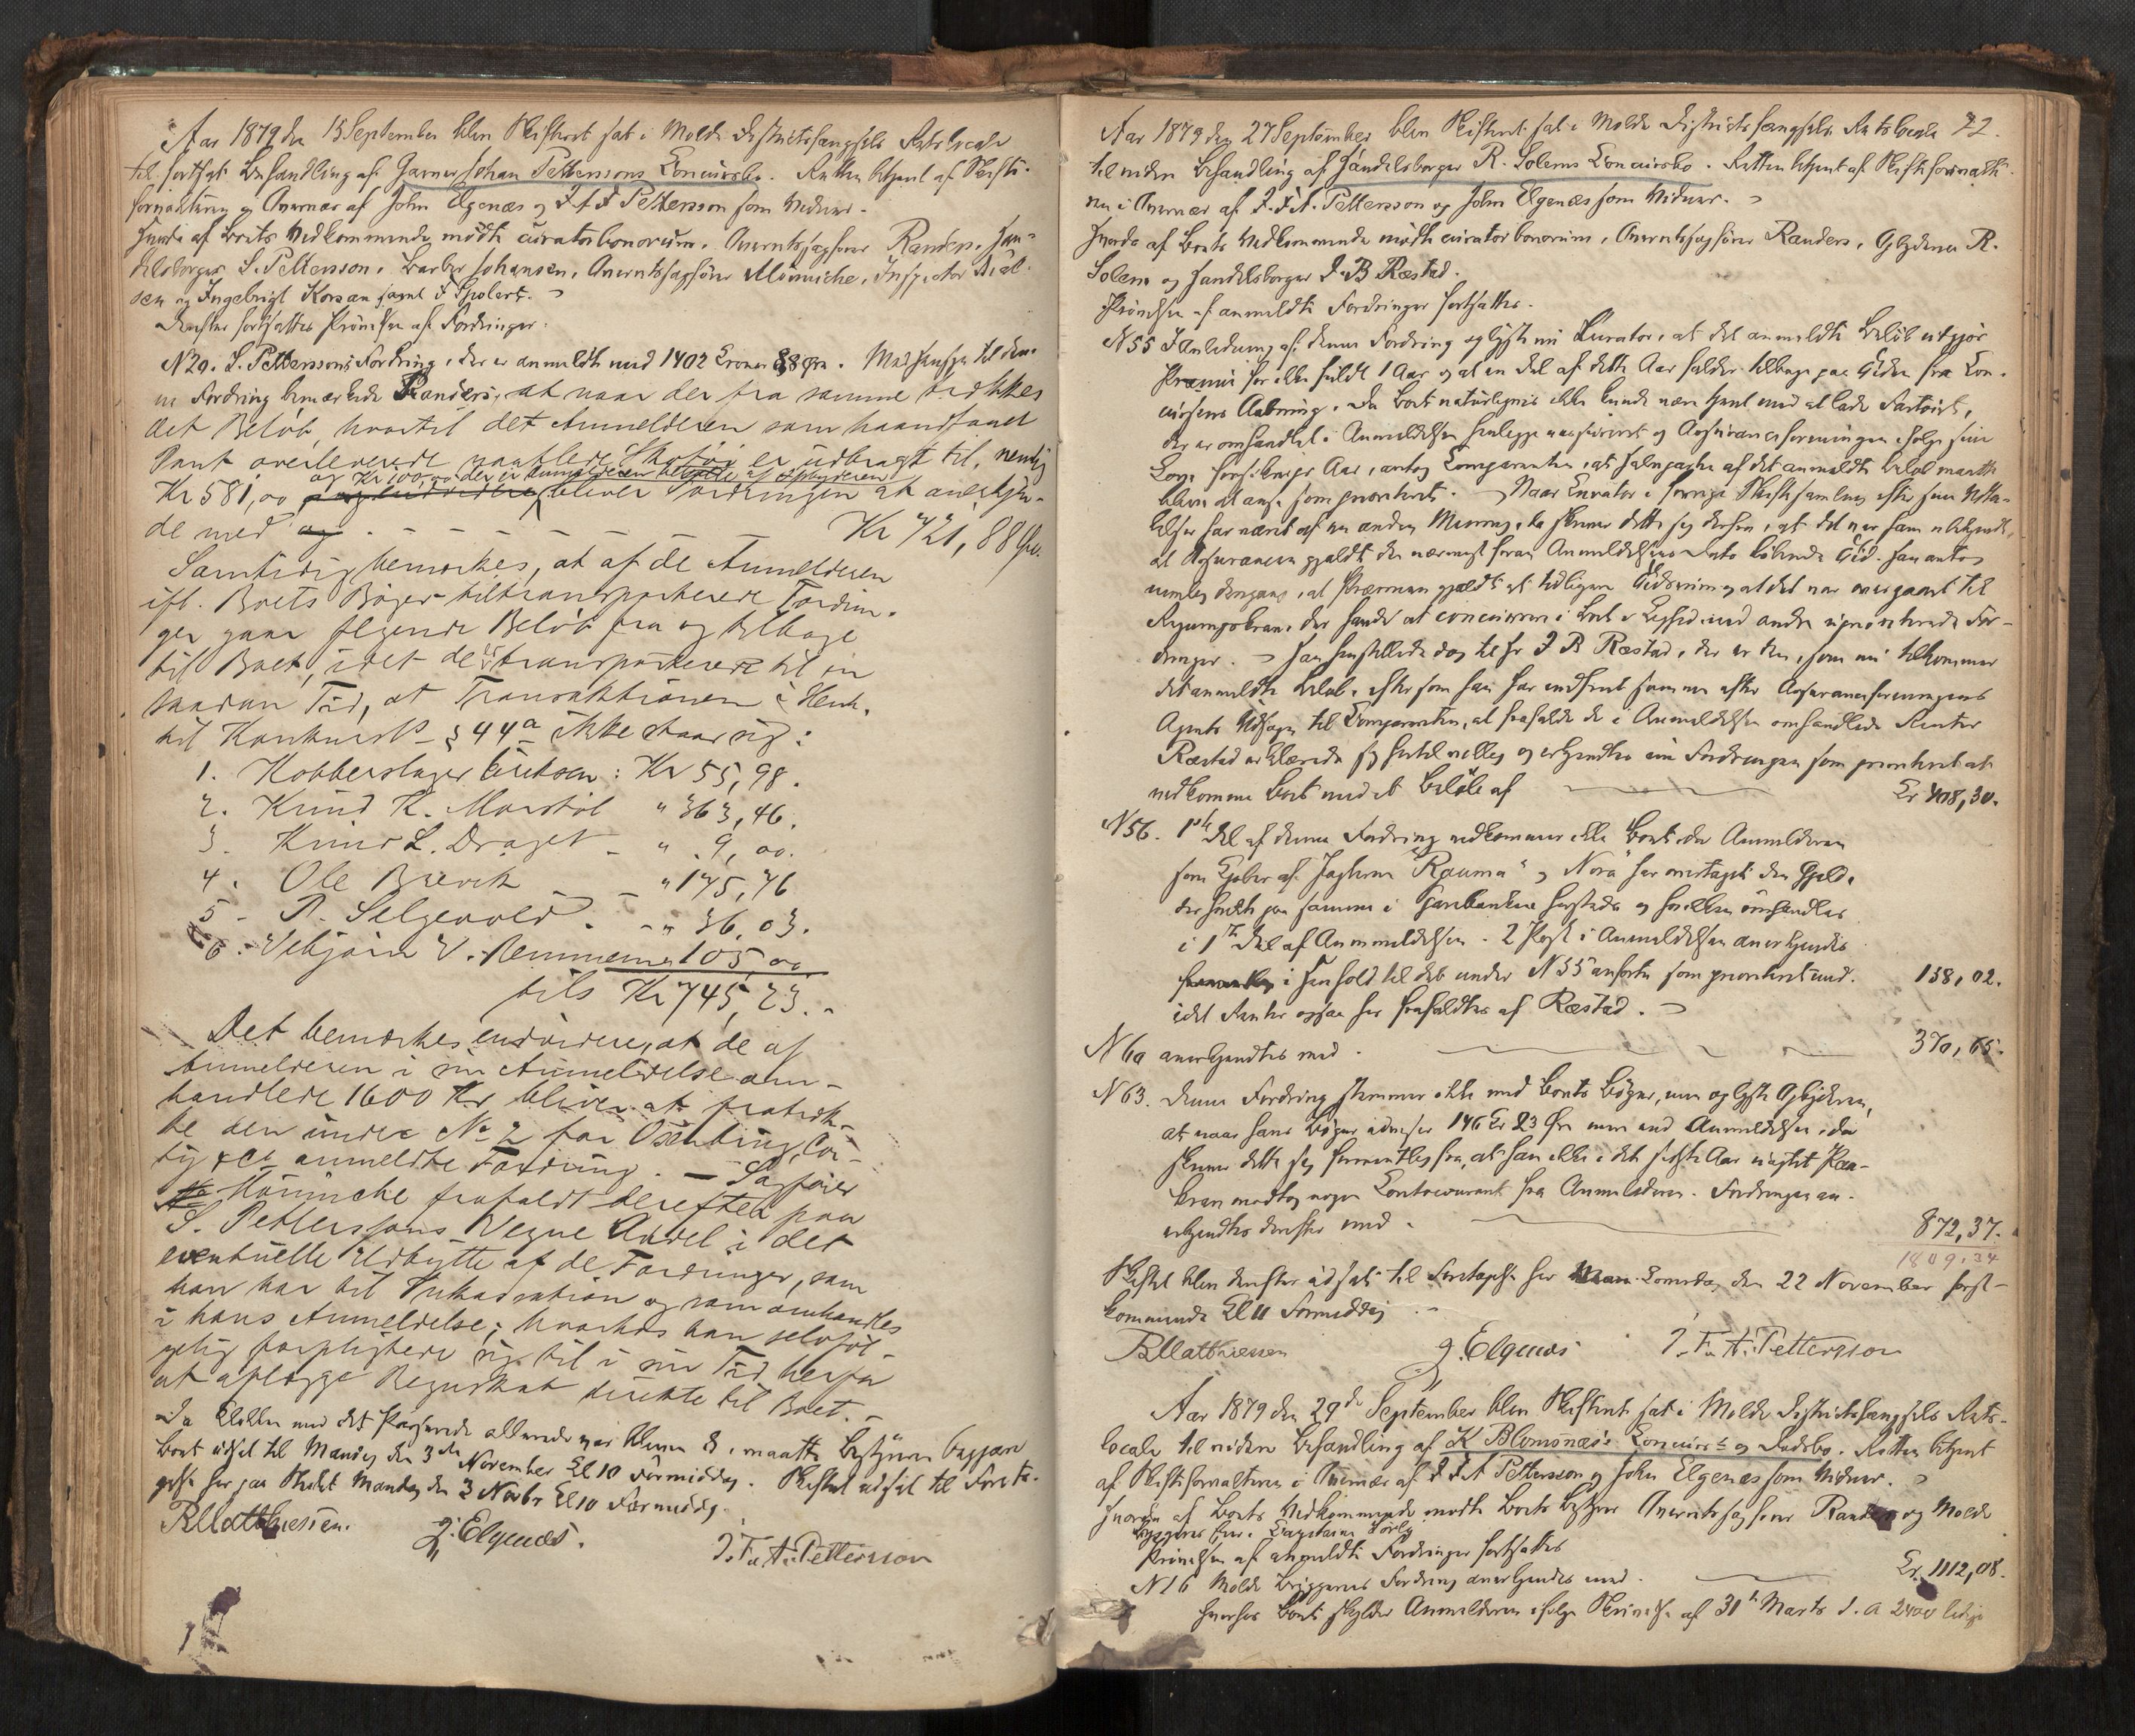 Aar 1879 den 15 September blev Skifteret sat i Molde Districtsfængsels Retslocale
til fortsat Behandling af Garver Johan Pettersons Concursbo. Retten betjent af Skifte-
forvalteren og Overvær af John Elgenæs og J. F. A. Petterson som Vidner.
Hvorda af Boets Vedkommende mødte curator bonorum, Overretssagfører Randers, Han-
delsborger S. Petterson, Barber Johansen, Overretssagfører Münniche, Inspector
sen og Ingebrigt Korsan samt
Derefter fortsattes Prøvelsen af Fordringer.
N 29. S. Pettersons Fordring, der er anmeldt med 1402 Kroner 88 Øre. Med Hensyn til den-
ne Fordring bemærkede Randers, at naar der fra samme trækkes
det Beløb, hvortil det Anmelderen som haandfaaet
Pant overleverede udbragt til, nemlig
og Kr 100,00 der er Anmelderen betalte af
Kr 581,00 bliver Fordringen at anerkjen-
de med Kr 721,88 Øre.
Samtidig bemærkes, at af de Anmelderen
ifl. Boets Bøger tiltransporterede Fordrin-
ger gaar følgende Beløb fra og tilbage
til Boet, idet de er transporterede til en
saadan Tid, at Transaktionen i Hen-
hit Konkursl. § 44 a ikke staar sig:
1. Kobberslager Eriksen: Kr 55,98.
2. Knud K. Marstøl " 363,46.
3. Knud L. Draget - " 9,00.
4. Ole Brevik - - " 175,76
5 - P. Selgevold - - " 36,03.
6. Vebjørn V. Nemmem 105,00
tils Kr 745,23.-
Det bemærkes endvidere, at de af
Anmelderen i sin Anmeldelse om-
handlede 1600 Kr. bliver at fratræk-
ke den under No 2 for
anmeldte Fordring. — Sagfører
Münniche frafaldt derefter paa
S. Pettersons Vegne Andel i det
eventuelle Udbytte af de Fordringer, som
han har til Inkassation og som omhandles
i hans Anmeldelse; hvorhos han selvføl-
gelig forpligtede sig til i sin Tid herfor
at aflægge Regnskab direkte til Boet.-
Da Klokken med det Passerede allerede var bleven 8, maatte
Boet udsat til Mandag den 3die November Kl 10 Formiddag. Skiftet udsat til Foreta-
gelse her paa Stedet Mandag den 3 Novbr Kl 10 Formiddag.
R Matthiessen. J. Elgenæs. J. F. A. Petterson
72.
Aar 1879 den 27 September blev Skifteret sat i Molde Districtsfængsels Retslocale
til videre Behandling af Handelsborger R. Solems Concursbo. Retten betjent af Skifteforvalte-
ren i Overvær af J. F. A. Petterson og John Elgenæs som Vidner.
Hvorda af Boets Vedkommende mødte curator bonorum, Overretssagfører Randers, Opbyderen R.
Solem og Handelsborger J. B Ræstad.
Prøvelsen af anmeldte Fordringer fortsattes.
N 55 I Anledning af denne Fordring oplyste nu Curator, at det anmeldte Beløb udgjør
Præmie for ikke fuldt 1 Aar og at en Del af dette Aar falder tilbage paa Tiden fra Con-
cursens Aabning. Da Boet naturligvis ikke kunde være tjent med at lade Fartøiet,
der er omhandlet i Anmeldelsen henligge uassureret og Assuranceforeningen ifølge sine
Love forsikrer Aar, antog Comparenten, at Halvparten af det anmeldte Beløb maatte
blive at anse som prioriteret. - Naar Curator i forrige Skiftesamling efter sine Udta-
lelser har været af en anden Mening, da skriver dette sig derfra, at det var ham ubekjendt,
at Assurancen gjaldt den nærmest foran Anmeldelsens Dato løbende Tid. Han antog
nemlig dengang, at Præmien gjældte et tidligere Tidsrum og at det var overgaaet til
Regningskrav, der havde at concurrere i Boet i Lighed med andre uprioriterede For-
dringer. - Han henstillede dog til Hr J B Ræstad, der er den, som nu tilkommer
det anmeldte Beløb, eftersom han har indfriet samme efter Assuranceforeningens
Agents Udsagn til Comparenten, at frafalde de i Anmeldelsen omhandlede Renter
Ræstad erklærede sig hertil villig og erkjendtes nu Fordringen som prioriteret at
vedkomme Boet med et Beløb af Kr 408,30.
N 56. 1ste Del af denne Fordring vedkommer ikke Boet, da Anmelderen
som Kjøber af Jagterne "Rauma" og "Nora" har overtaget den Gjæld,
der hæfter paa samme i Sparebanken hersteds og hvilken omhandles
i 1ste Del af Anmeldelsen. 2 Post i Anmeldelsen anerkjendes
i Henhold til det under N 55 anførte som prioriteret med. 158,02.
idet Renter ogsaa her frafaldtes af Ræstad.
N 60 anerkjendtes med 370,65.
N 63. Denne Fordring stemmer ikke med Boets Bøger, men oplyste Opbyderen,
at naar hans Bøger udviser 146 Kr 23 Øre mere end Anmeldelsen, da
skriver dette sig formentlig fra, at han ikke i det sidste Aar
modtog nogen Contocourant fra Anmelderen. Fordringen an-
erkjendtes derefter med 872,37.
1809.34
Skiftet blev derefter udsat til Foretagelse her Løverdag den 22 November først-
kommende Kl 11 Formiddag
R Matthiessen J. Elgenæs J. F. A. Petterson
Aar 1879 den 29de September blev Skifteret sat i Molde Districtsfængsels Rets-
locale til videre Behandling af K Blomsnæs's Concurs- og Dødsbo. Retten betjent
af Skifteforvalteren i Overvær af J. F. A Petterson og John Elgenæs som Vidner.
Hvorda af Boets Vedkommende mødte Boets Bestyrer Overretssagfører Randers og Molde
Bryggeris Eier
Prøvelsen af anmeldte Fordringer fortsattes
N 16 Molde Bryggeris Fordring anerkjendes med Kr. 1112,08.
Hvorhos Boet skylder Anmelderen ifølge af 31te Marts d. A 2400